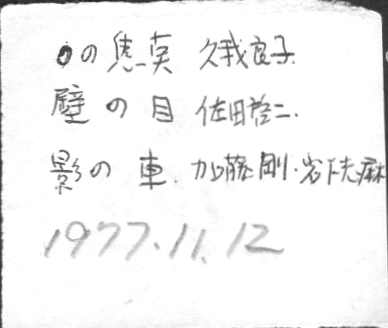 0の 久我良子
壁の目 佐田啓二.
影の車.加藤剛.岩下志麻
1977.11.12